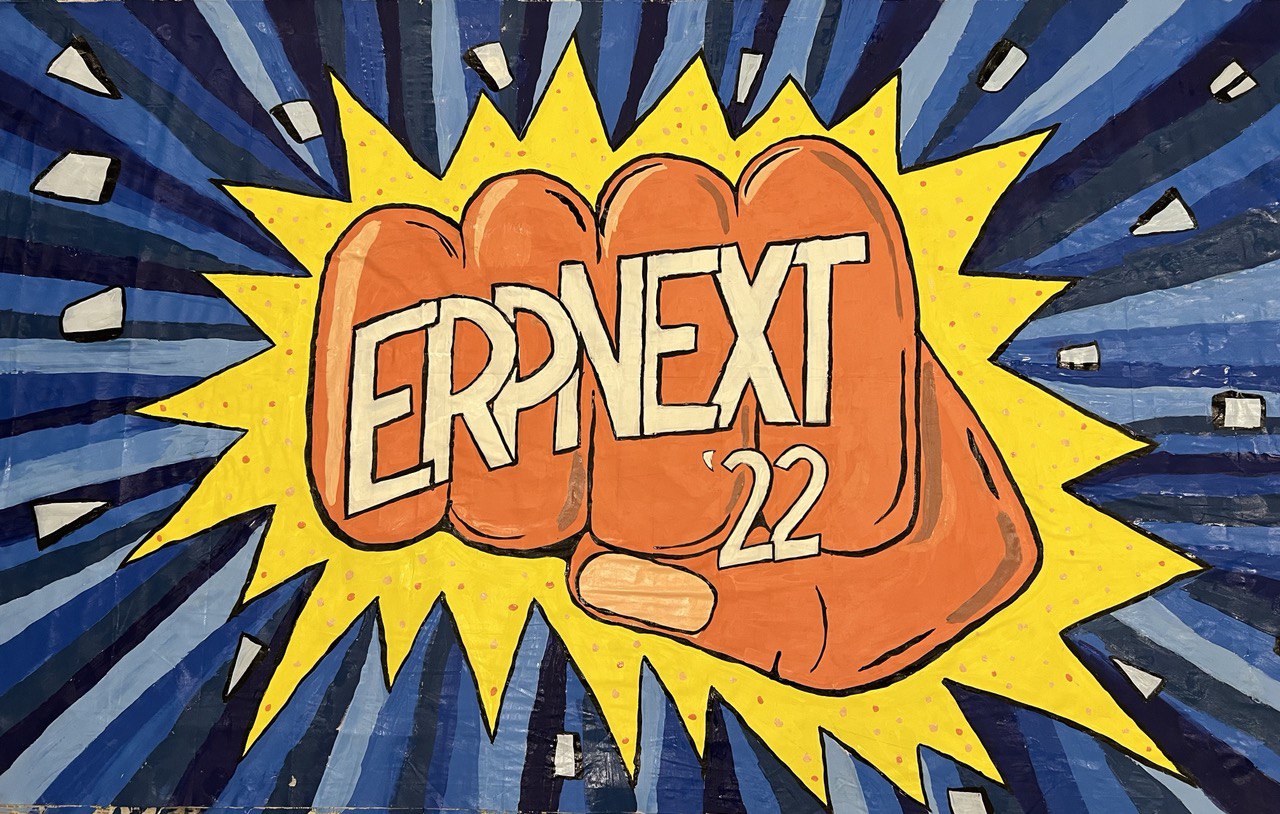 ERPNEXT
'22